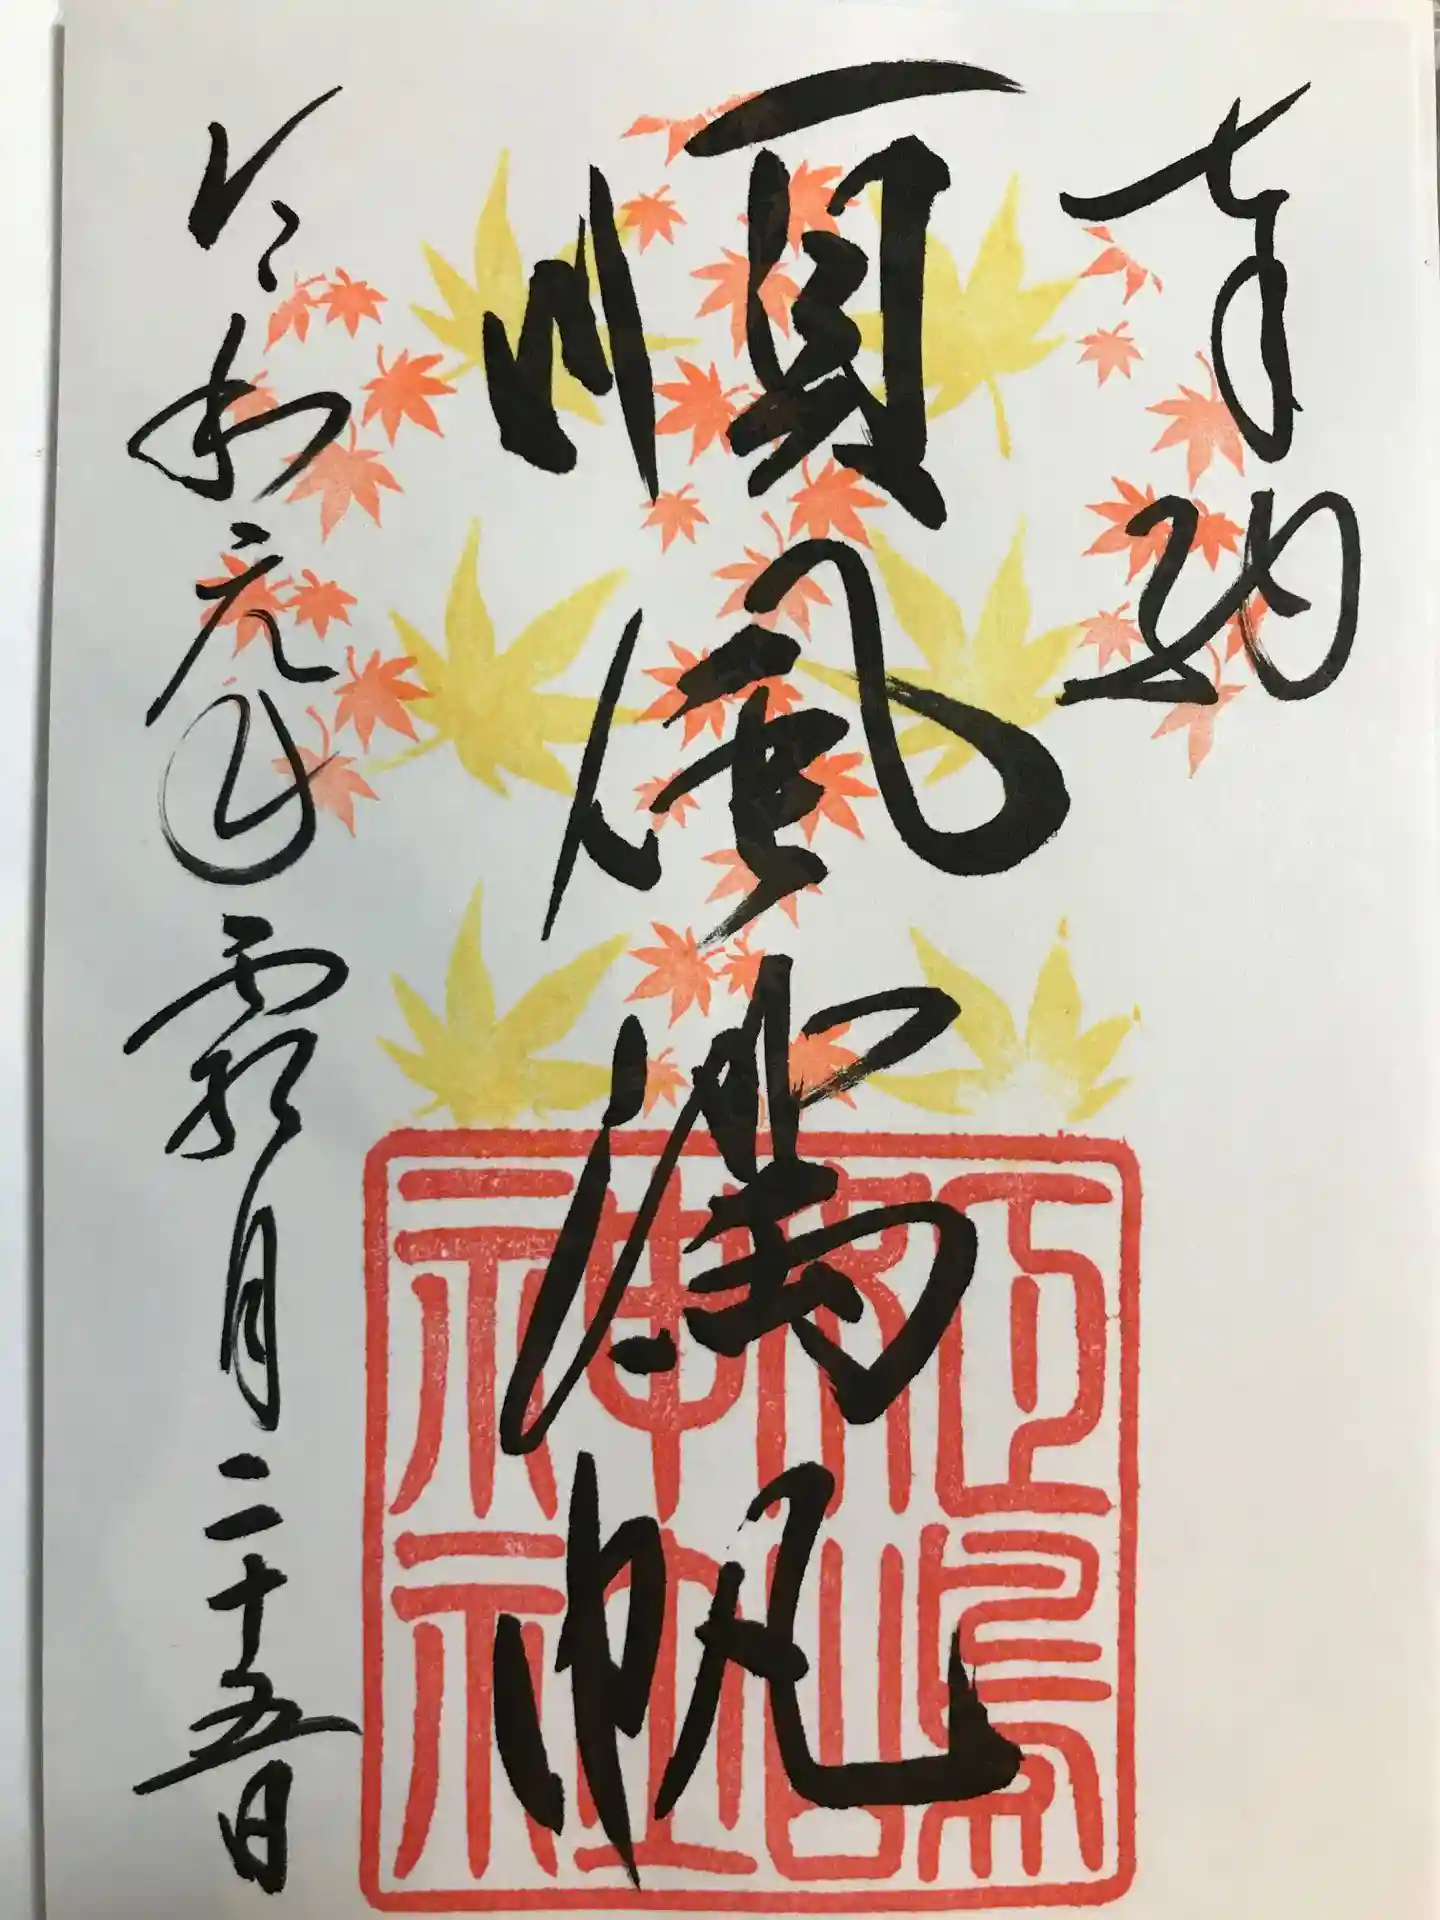 奉納
順風満帆
令和元年霜月二十五日